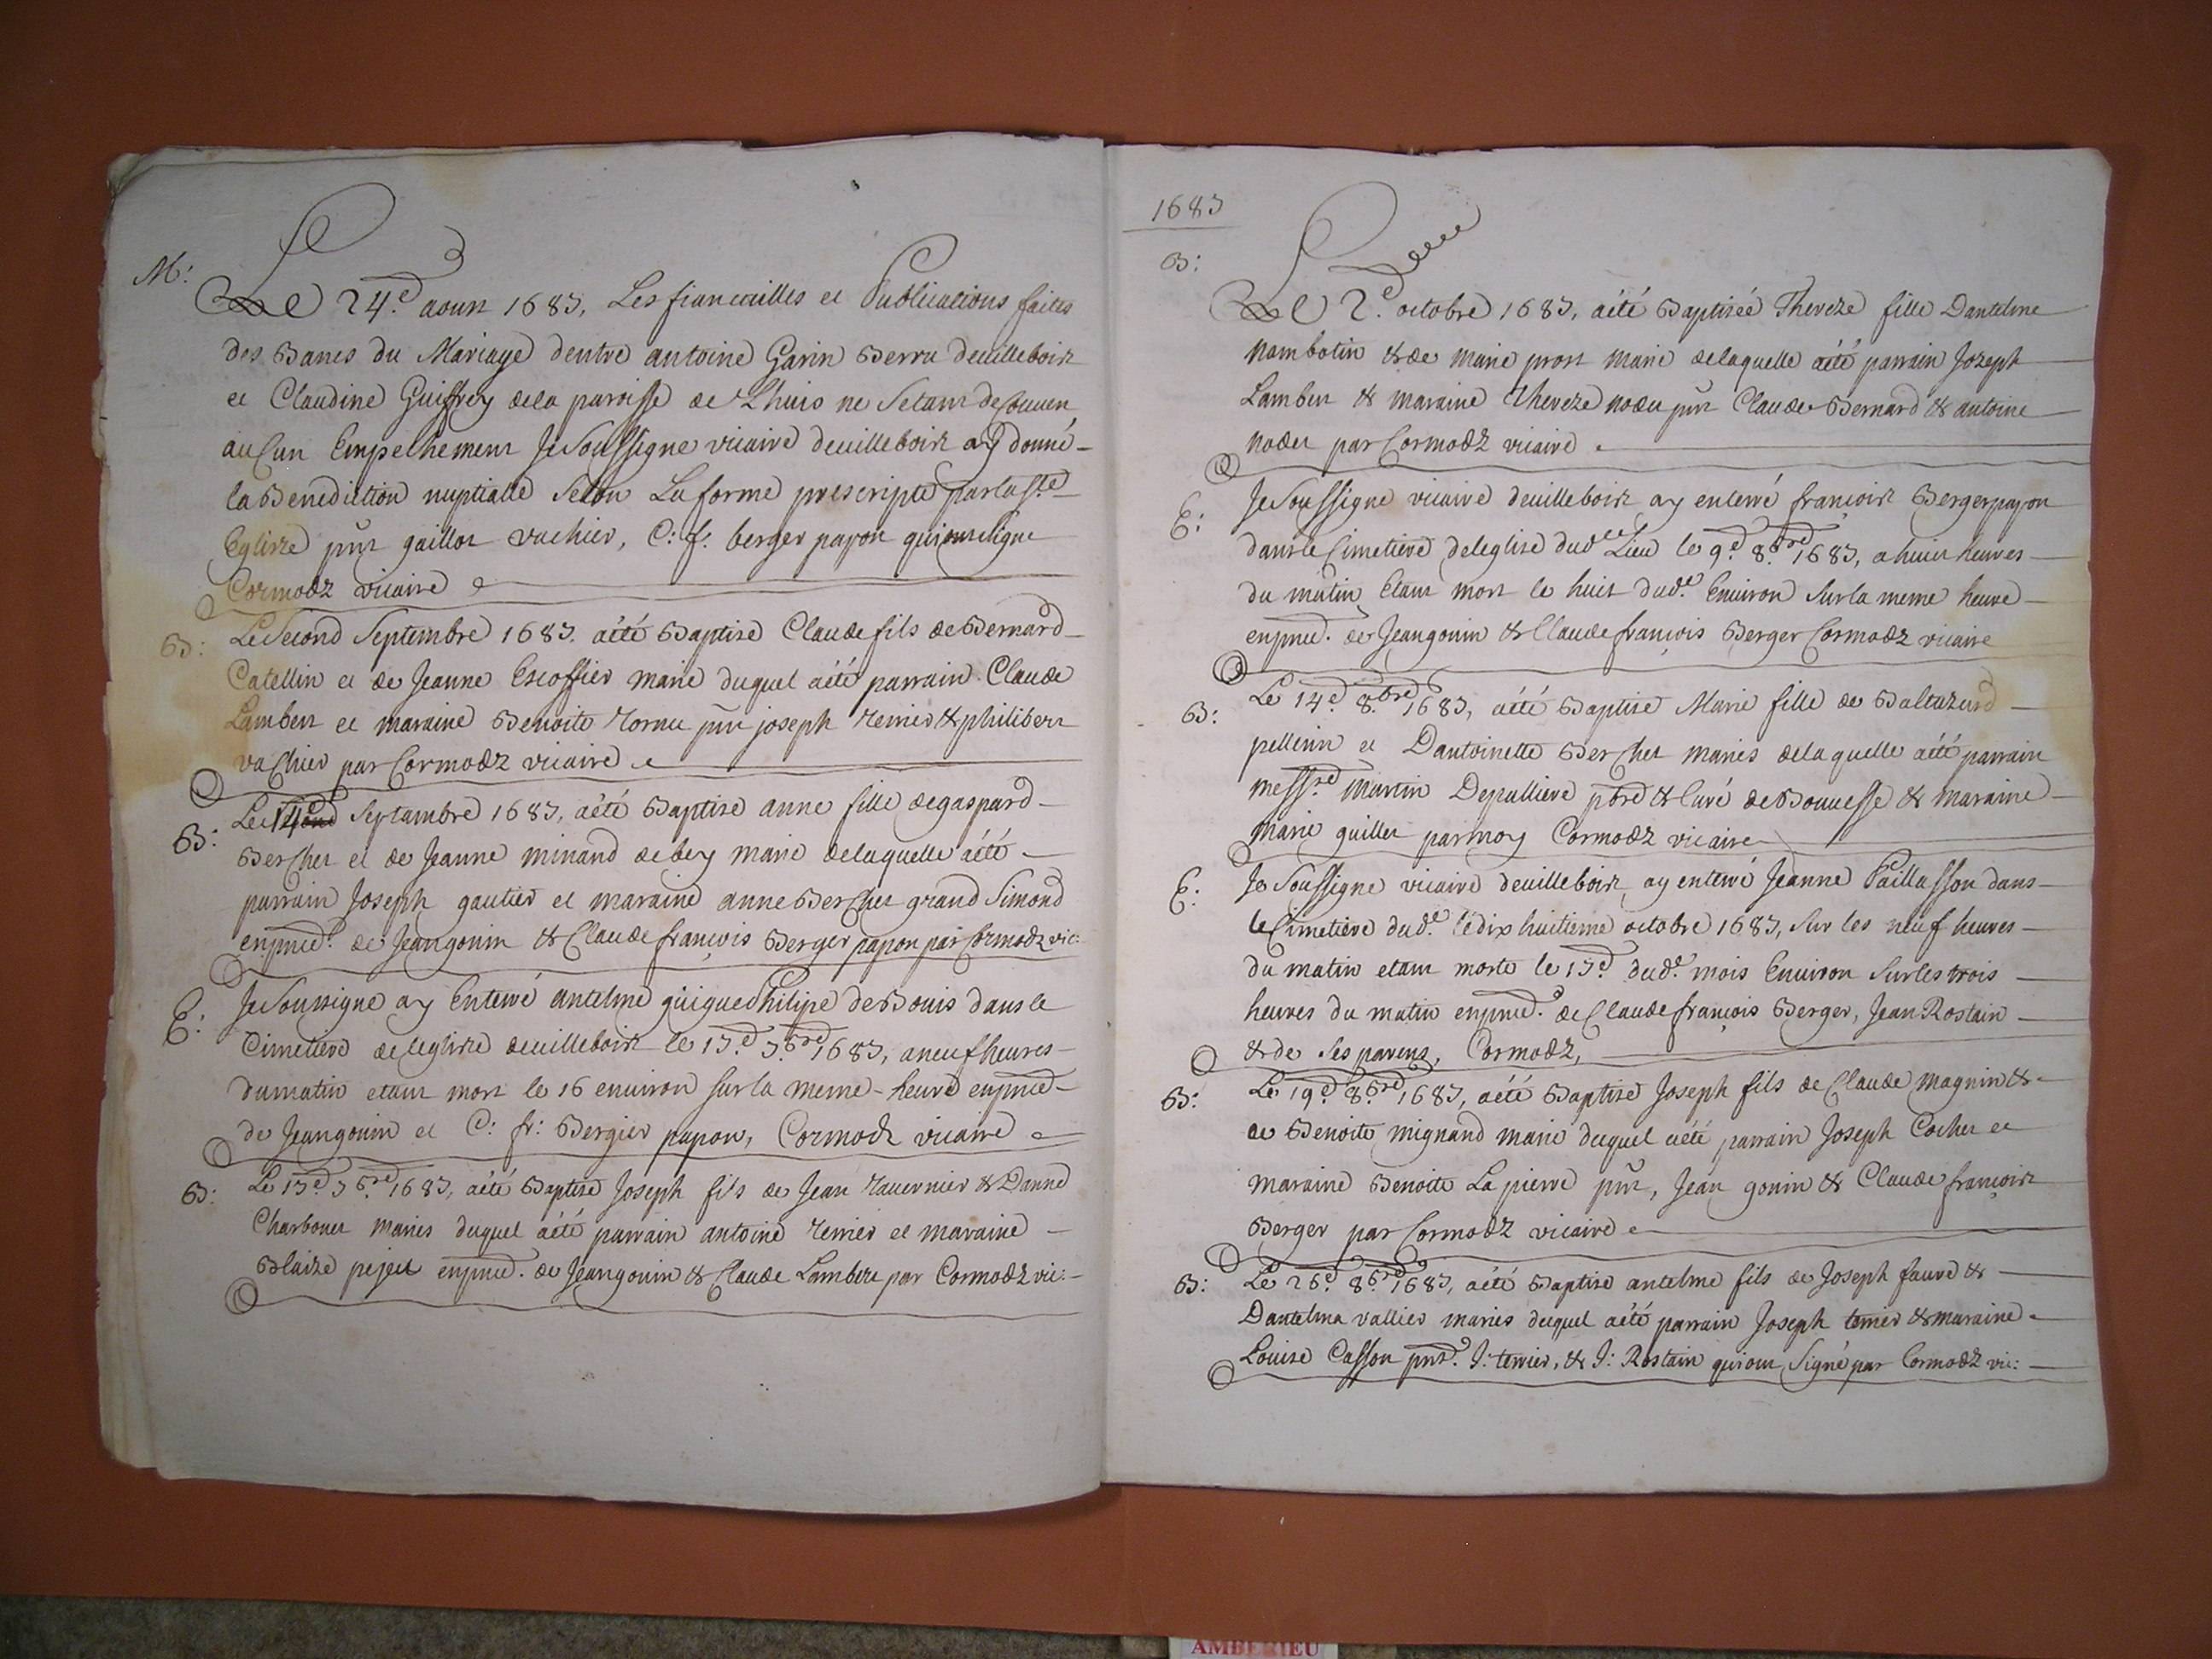 M:
Le 24.e aoust 1683, Les fiancailles et Publications faites
des Bancs du Mariage dentre antoine Garin Berru deuillebois
et Claudine Guiffrey dela paroisse de Lhuis ne Setant decouuen
aucun Empechement Je Soussigne vicaire deuillebois ay donné
la Benediction nuptialle Selon La forme prescripte par la Ste
Eglise pnt gaillot vachier, C: f: berger papon qui ont signe
Cormodz vicaire
B: Le Second Septembre 1683. aété Baptise Claude fils de Bernard
Catellin et de Jeanne Escoffier marie duquel aété parrain Claude
Lambert et maraine Benoite Tornu pnt joseph Terrier & philibert
vachier par Cormodz vicaire
B: Le 14e Septambre 1683, aété Baptise anne fille de gaspard
Bercher et de Jeanne minand debey marie delaquelle aété
parrain Joseph gautier et maraine anne Bercher grand Simond
en pnce. de Jean gonin & Claude francois Berger papon par Cormodz vic:
E: Je Soussigne ay Enterré antelme guigue Philipe de Bouis dans le
Cimetiere deleglise deuillebois le 17.e 7.bre 1683, a neuf heures
du matin etant mort le 16 enuiron sur la meme heure en pnce
de Jean gonin et C: fr: Bergier papon, Cormodz vicaire
B: Le 17.e 7.bre 1683, aété Baptise Joseph fils de Jean Tauernier & Danne
Charbonet maries duquel aété parrain antoine Terrier et maraine
Blaize pejeit en pnce. de Jean gonin & Claude Lambert par Cormodz vic:
1683
B:
Le 2.e octobre 1683, aété Baptiseé Thereze fille Dantelme
nambotin & de marie prost marie delaquelle aété parrain Jozeph
Lambert & maraine Thereze nodet pnt Claude Bernard & antoine
nodet par Cormodz vicaire
E: Je Soussigne vicaire deuillebois ay enterré francois Berger papon
dans le Cimetiere deleglise dud.e Lieu le 9.e 8.bre 1683, a huict heures
du matin Etant mort le huit dud.e Enuiron Sur la meme heure
en pnce. de Jean gonin & Claude francois Berger Cormodz vicaire
B: Le 14.e 8.bre 1683, aété Baptise Marie fille de Baltazard
pellerin et Dantoinette Bercher maries delaquelle aété parrain
mess.re Martin Depulliere pbre & Curé de Bouuesse & maraine
marie guillet par moy Cormodz vicaire
E: Je Soussigne vicaire deuillebois ay enterré Jeanne Paillasson dans
le Cimetiere dud.e le dix huitieme octobre 1683, Sur les neuf heures
du matin etant morte le 17.e dud.e mois Enuiron Sur les trois
heures du matin en pnce. de Claude francois Berger, Jean Rostain
& de Ses parens, Cormodz,
B: Le 19.e 8.bre 1683, aété Baptise Joseph fils de Claude magnin &
de Benoite mignand marie duquel aété parrain Joseph Cochet et
maraine Benoite La pierre pnt, Jean gonin & Claude francois
Berger par Cormodz vicaire
B: Le 26.e 8.bre 1683, aété Baptise antelme fils de Joseph faure &
Dantelma vallier maries duquel aété parrain Joseph terrier & maraine
Louise Casson pnt. J: terrier, & J: Rostain qui ont Signé par Cormodz vic: